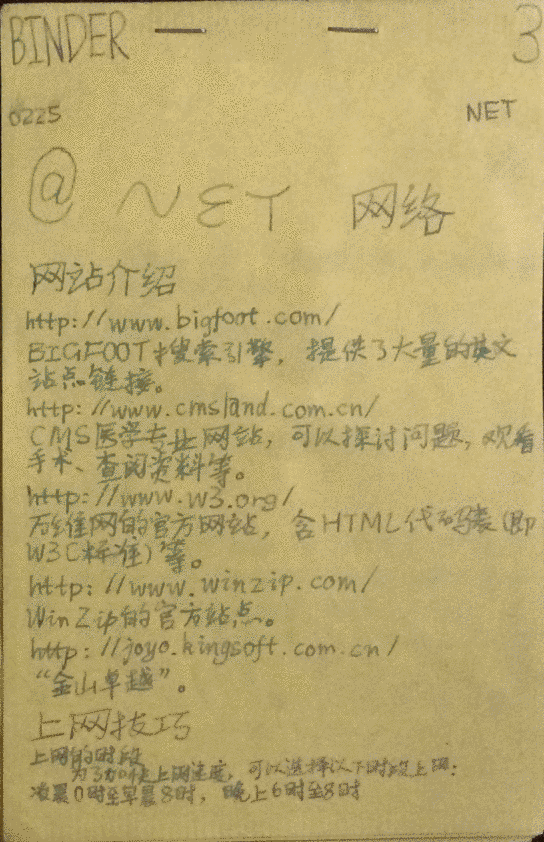 BINDER 3
0225 NET
@ NET 网络
网站介绍
http://www.bigfoot.com/
BIGFOOT搜索引擎，提供了大量的英文
站点链接。
http://www.cmsland.com.cn/
CMS医学专业网站，可以探讨问题，观看
手术、查阅资料等。
http://www.w3.org/
万维网的官方网站，含HTML代码表（即
W3C标准）等。
http://www.winzip.com/
WinZip的官方站点。
http://joyo.kingsoft.com.cn/
“金山卓越”。
上网技巧
上网的时段
为了加快上网速度，可以选择以下时段上网：
凌晨0时至早晨8时，晚上6时至8时